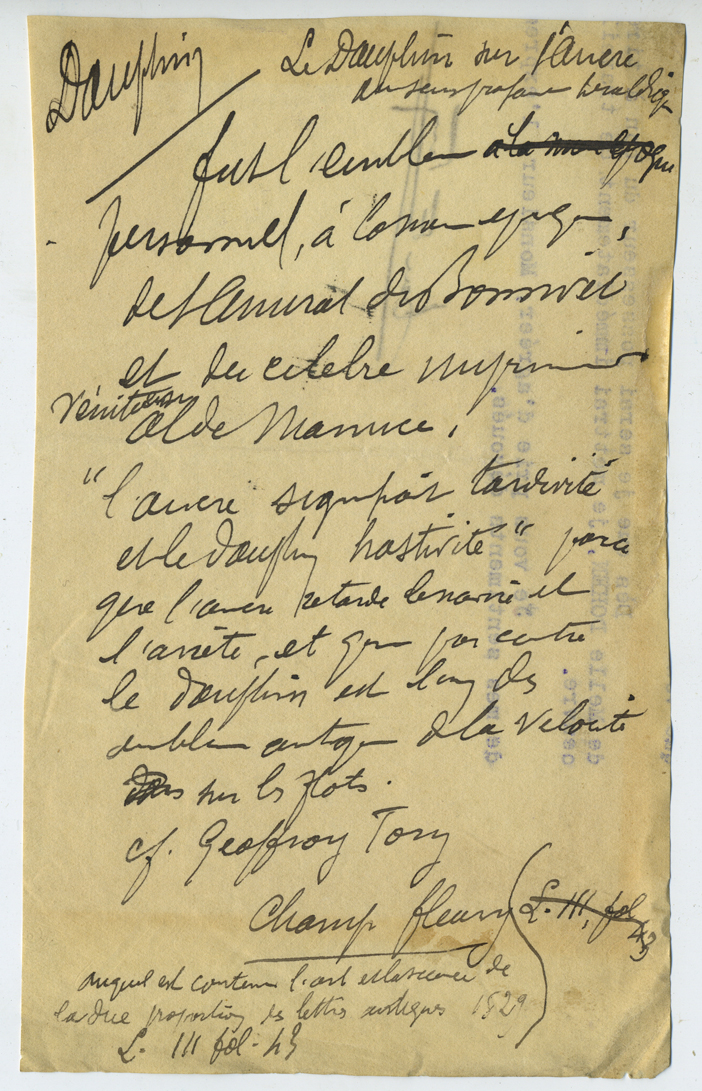 Dauphin
Le Dauphin sur l'Ancre
au sens profane héraldique
fut l'emblème à la même époque
personnel, à la même époque,
de l'Amiral de Bonnivet
et du célèbre imprimeur
vénitien
Alde Manuce.
"l'ancre signifiait tardivité
et le dauphin hastivité" parce
que l'ancre retarde le navire et
l'arrête, et que par contre
le dauphin est l'un des
emblèmes antiques de la vélocité
sur les flots.
cf. Geoffroy Tory
Champ fleury (L. III, fol 43
auquel est contenu l'art et la science de
la due proportion des lettres antiques 1529
L. III fol. 43